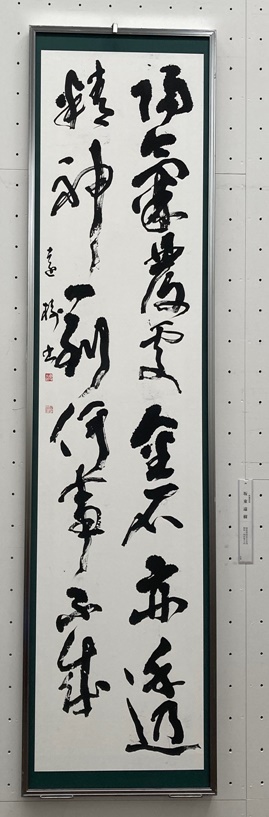 陽氣發處金石亦透
精神一到何事不成